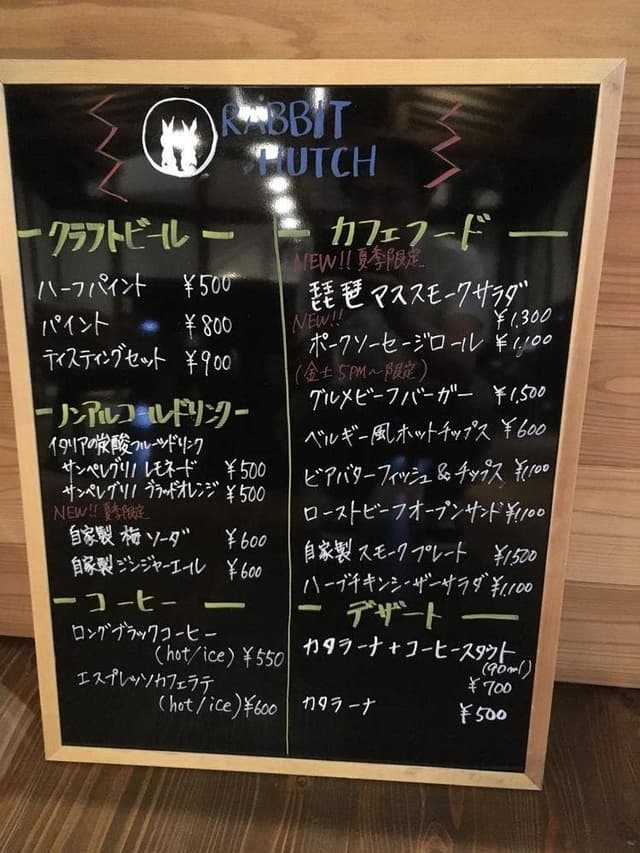 RABBIT
HUTCH
クラフトビール
ハーフパイント ¥500
パイント ¥800
ティスティングセット ¥900
ノンアルコールドリンク
イタリアの炭酸フルーツドリンク
サンペレグリノ レモネード ¥500
サンペレグリノ ブラッドオレンジ ¥500
NEW!! 夏季限定
自家製 梅ソーダ ¥600
自家製 ジンジャーエール ¥600
コーヒー
ロングブラックコーヒー
(hot/ice) ¥550
エスプレッソカフェラテ
(hot/ice) ¥600
カフェフード
NEW!! 夏季限定
琵琶マススモークサラダ
¥1,300
NEW!!
ポークソーセージロール ¥1,100
(金土5PM〜限定)
グルメビーフバーガー ¥1,500
ベルギー風ホットチップス ¥600
ビアバターフィッシュ&チップス ¥1,100
ローストビーフオープンサンド ¥1,100
自家製 スモークプレート ¥1,500
ハーブチキンシーザーサラダ ¥1,100
デザート
カタラーナ+コーヒースタウト
(90ml)
¥700
カタラーナ ¥500